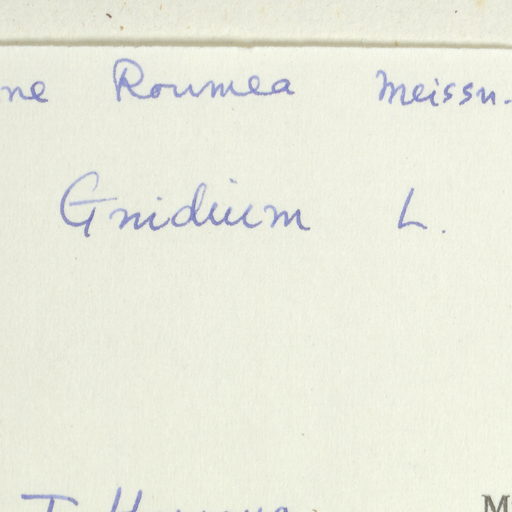 ne Roumea Meissn.
Gnidium L.
M